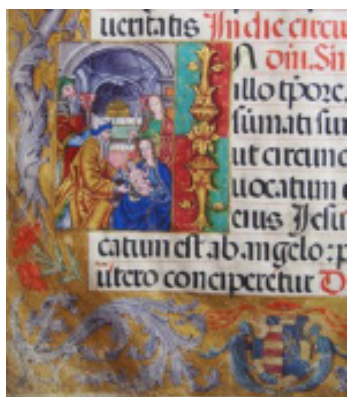 ueritatis In die circu
N oiu. Sin
illo tpore.
sumati sun
ut circunc
uocatum e
eius Jesu
catum est ab angelo: p
utero conciperetur D